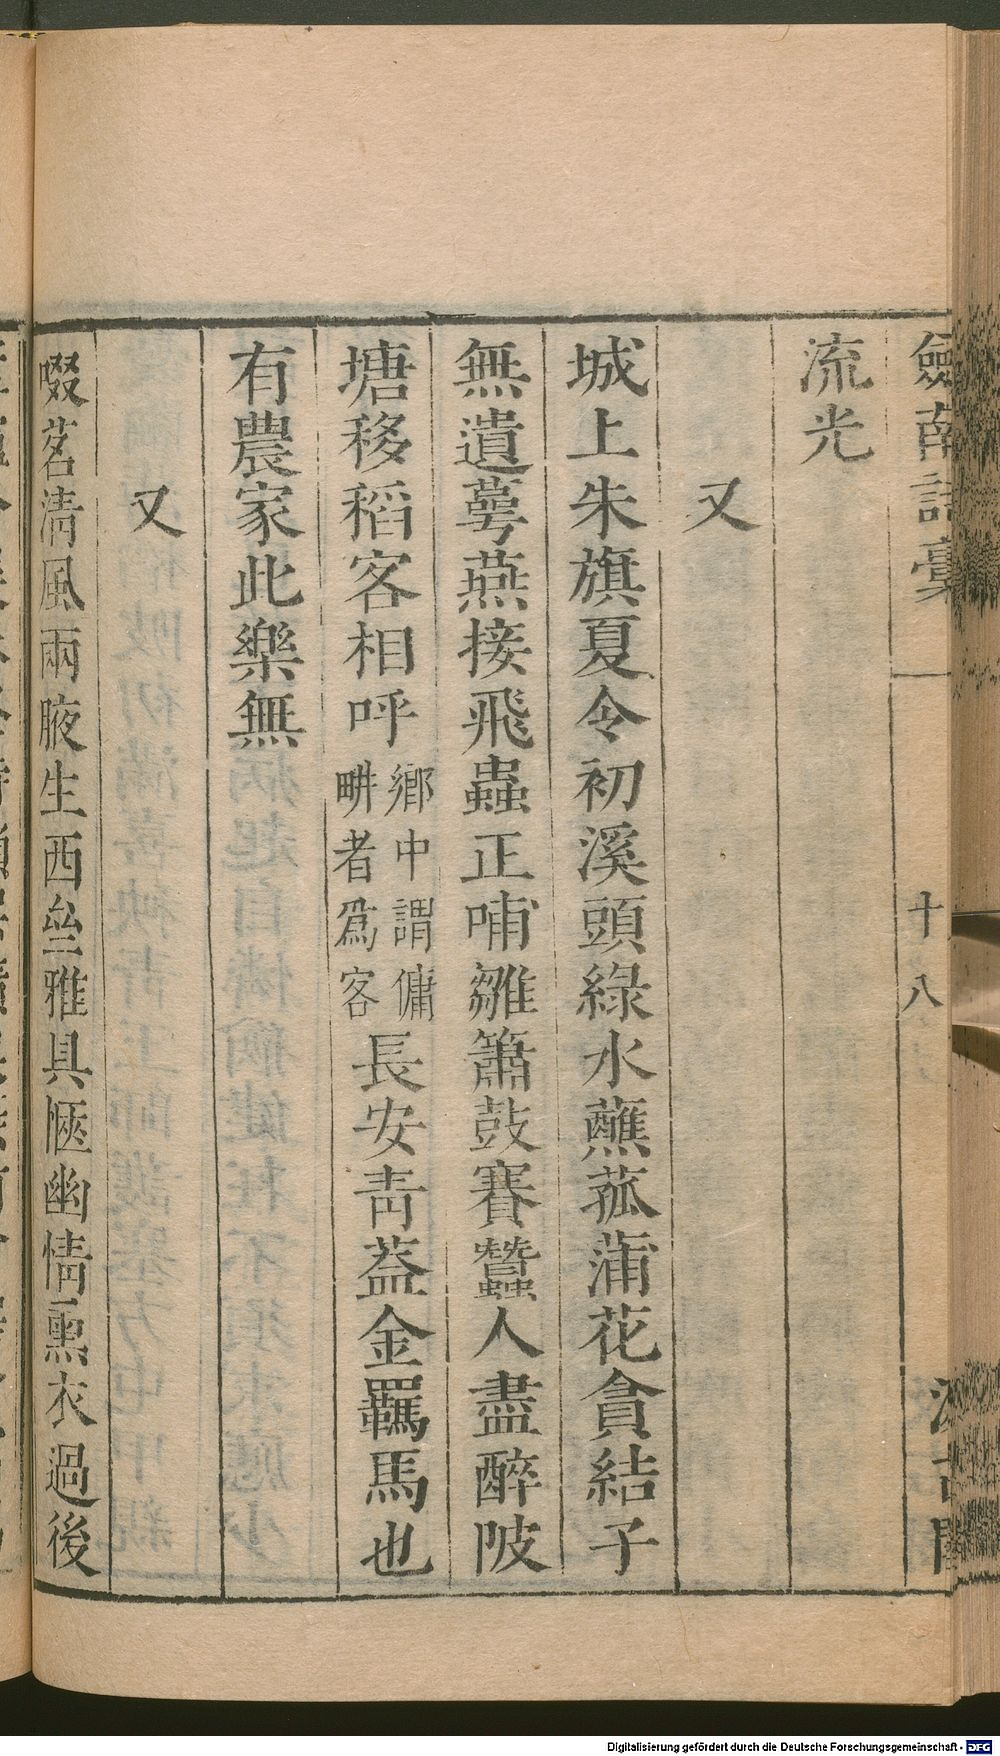 劍南詩稾
十八
汲古閣
流光
又
城上朱旗夏令初溪頭綠水蘸菰蒲花貪結子
無遺萼燕接飛蟲正哺雛簫鼓賽蠶人盡醉陂
塘移稻客相呼鄉中謂傭畊者爲客長安靑葢金羈馬也
有農家此樂無
又
啜茗清風兩腋生西壘雅具愜幽情熏衣過後
Digitalisierung gefördert durch die Deutsche Forschungsgemeinschaft - DFG